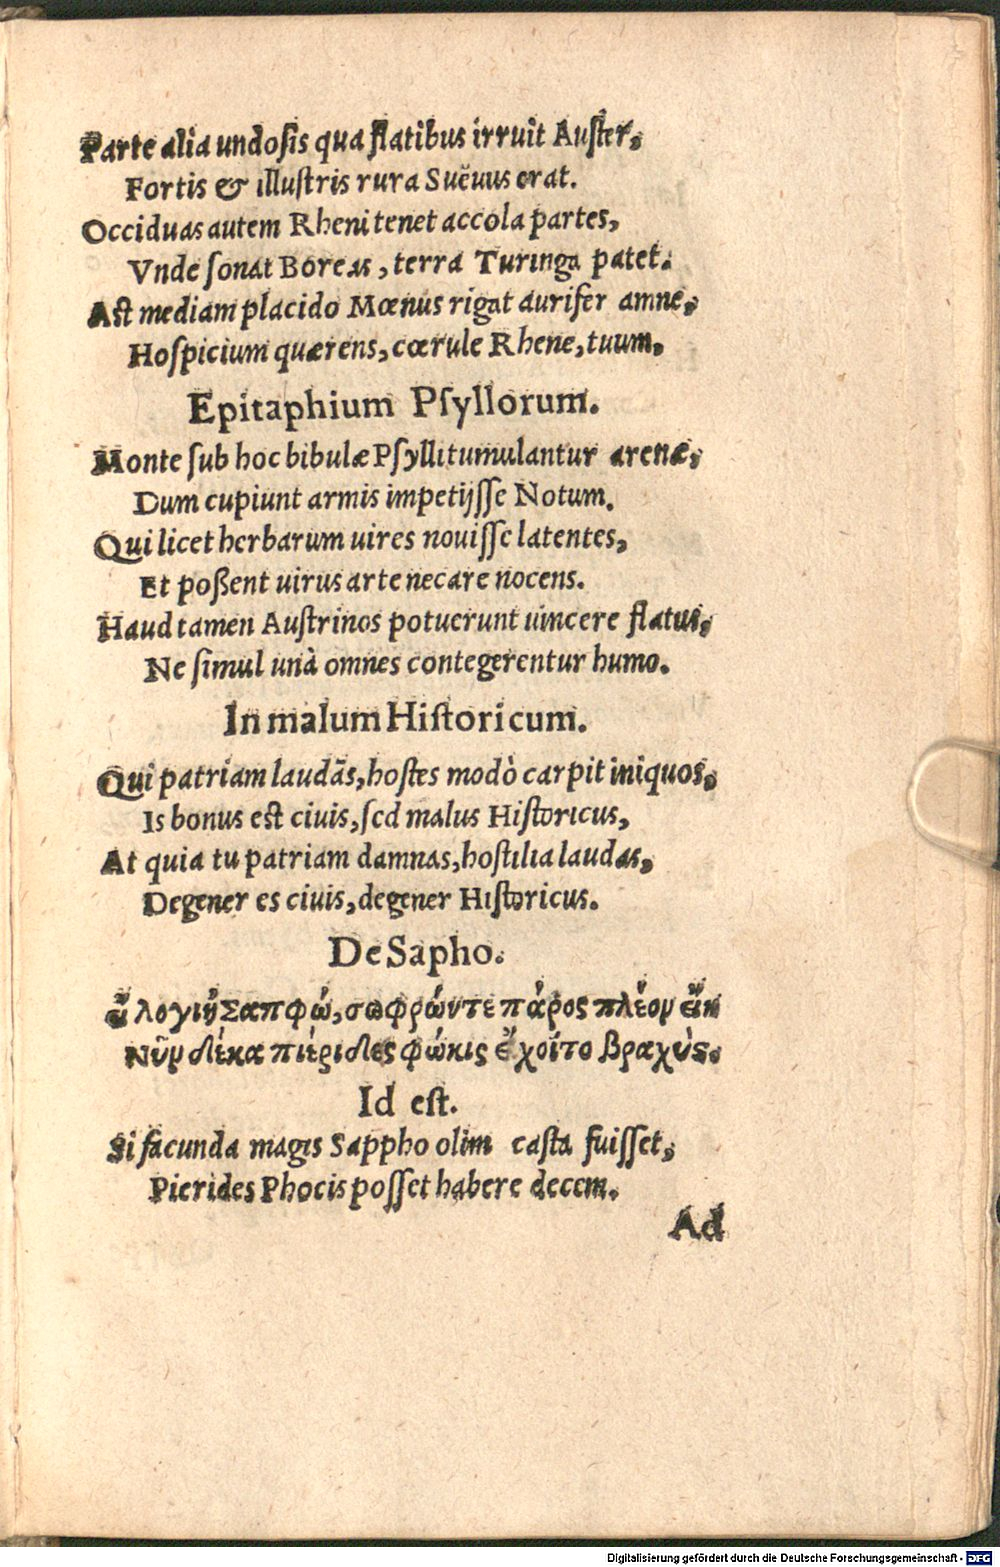 Parte alia undosis qua flatibus irruit Auster,
Fortis & illustris rura Suëuus erat.
Occiduas autem Rheni tenet accola partes,
Vnde sonat Boreas, terra Turinga patet.
Ast mediam placido Mœnus rigat aurifer amne,
Hospicium quærens, cœrule Rhene, tuum.
Epitaphium Psyllorum.
Monte sub hoc bibulæ Psylli tumulantur arenæ,
Dum cupiunt armis impetijsse Notum.
Qui licet herbarum uires nouisse latentes,
Et poßent uirus arte necare nocens.
Haud tamen Austrinos potuerunt uincere flatus,
Ne simul unà omnes contegerentur humo.
In malum Historicum.
Qui patriam laudãs, hostes modò carpit iniquos,
Is bonus est ciuis, sed malus Historicus,
At quia tu patriam damnas, hostilia laudas,
Degener es ciuis, degener Historicus.
De Sapho.
λογιὴ Σαπφώ, σωφρών τε πάρος πλέον
Νῦν δέκα πιέριδες φώκις ἔχοίτο βραχὺς.
Id est.
Si facunda magis Sappho olim casta fuisset,
Pierides Phocis posset habere decem.
Ad
Digitalisierung gefördert durch die Deutsche Forschungsgemeinschaft - DFG